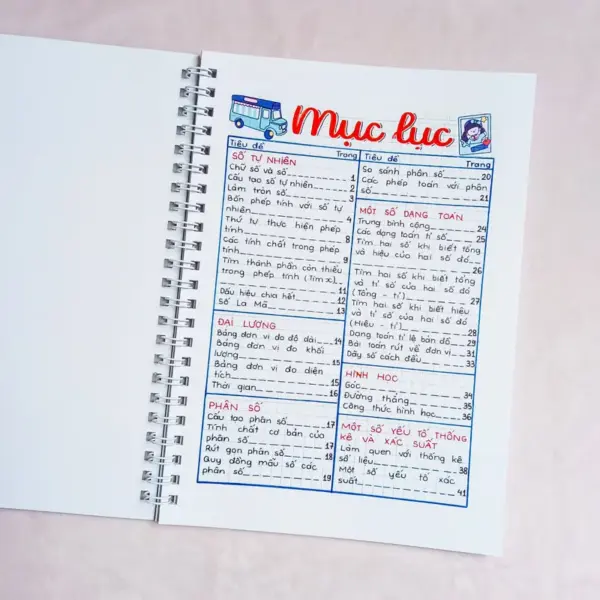 Mục lục
Tiêu đề Trang
SỐ TỰ NHIÊN
Chữ số và số 1
Cấu tạo số tự nhiên 2
Làm tròn số 3
Bốn phép tính với số tự
nhiên 4
Thứ tự thực hiện phép
tính 8
Các tính chất trong phép
tính 9
Tìm thành phần còn thiếu
trong phép tính (Tìm x) 11
Dấu hiệu chia hết 12
Số La Mã 13
ĐẠI LƯỢNG
Bảng đơn vị đo độ dài 14
Bảng đơn vị đo khối
lượng 15
Bảng đơn vị đo diện
tích 15
Thời gian 16
PHÂN SỐ
Cấu tạo phân số 17
Tính chất cơ bản của
phân số 17
Rút gọn phân số 18
Quy đồng mẫu số các
phân số 19
Tiêu đề Trang
So sánh phân số 20
Các phép toán với phân
số 21
MỘT SỐ DẠNG TOÁN
Trung bình cộng 24
Các dạng toán tỉ số 25
Tìm hai số khi biết tổng
và hiệu của hai số đó 26
Tìm hai số khi biết tổng
và tỉ số của hai số đó
(Tổng - tỉ) 27
Tìm hai số khi biết hiệu
và tỉ số của hai số đó
(Hiệu - tỉ) 28
Dạng toán tỉ lệ bản đồ 29
Bài toán rút về đơn vị 31
Dãy số cách đều 33
HÌNH HỌC
Góc 34
Đường thẳng 35
Công thức hình học 36
MỘT SỐ YẾU TỐ THỐNG
KÊ VÀ XÁC SUẤT
Làm quen với thống kê
số liệu 38
Một số yếu tố xác
suất 41